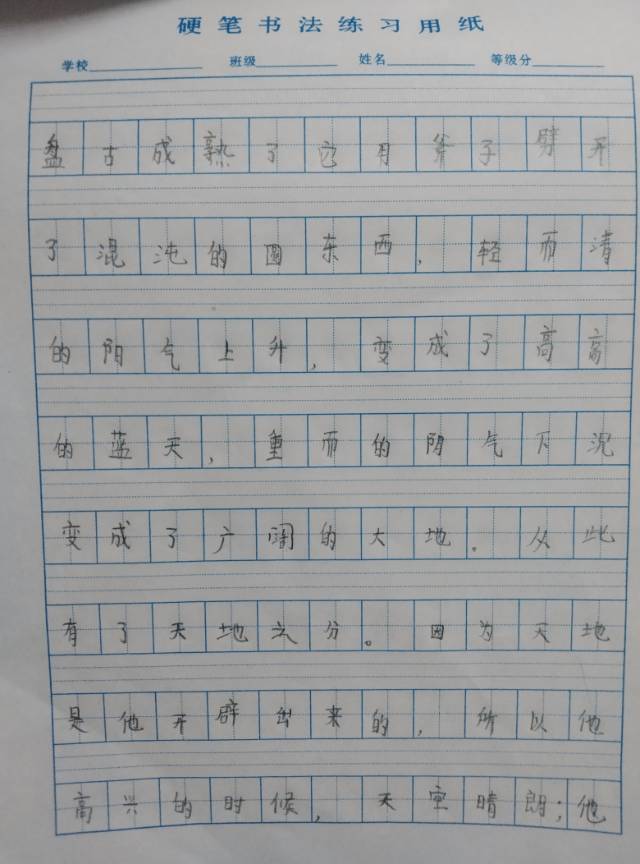 硬笔书法练习用纸
学校 班级 姓名 等级分
盘古成熟了它用斧子劈开
了混沌的圆东西，轻而清
的阳气上升，变成了高高
的蓝天，重而的阴气下沉
变成了广阔的大地。从此
有了天地之分。因为天地
是他开辟出来的，所以他
高兴的时候，天空晴朗；他